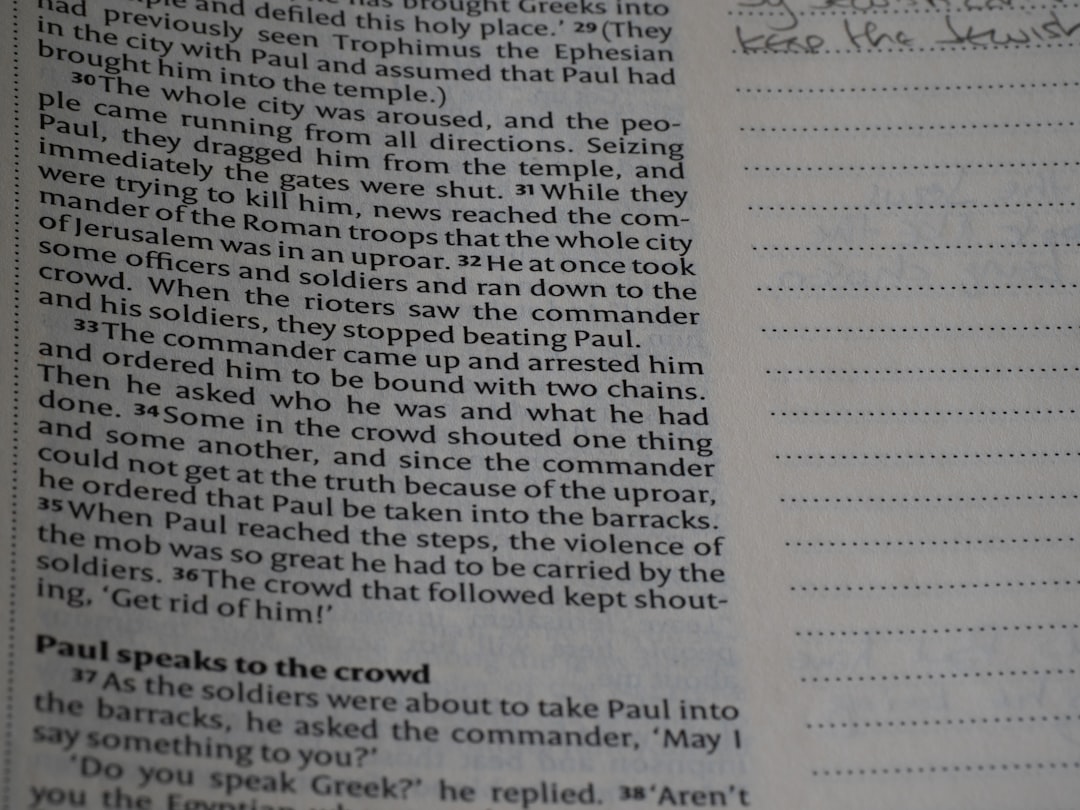 brought Greeks into
and defiled this holy place.’ 29 (They
had previously seen Trophimus the Ephesian
in the city with Paul and assumed that Paul had
brought him into the temple.)
30 The whole city was aroused, and the peo-
ple came running from all directions. Seizing
Paul, they dragged him from the temple, and
immediately the gates were shut. 31 While they
were trying to kill him, news reached the com-
mander of the Roman troops that the whole city
of Jerusalem was in an uproar. 32 He at once took
some officers and soldiers and ran down to the
crowd. When the rioters saw the commander
and his soldiers, they stopped beating Paul.
33 The commander came up and arrested him
and ordered him to be bound with two chains.
Then he asked who he was and what he had
done. 34 Some in the crowd shouted one thing
and some another, and since the commander
could not get at the truth because of the uproar,
he ordered that Paul be taken into the barracks.
35 When Paul reached the steps, the violence of
the mob was so great he had to be carried by the
soldiers. 36 The crowd that followed kept shout-
ing, ‘Get rid of him!’
Paul speaks to the crowd
37 As the soldiers were about to take Paul into
the barracks, he asked the commander, ‘May I
say something to you?’
‘Do you speak Greek?’ he replied. 38 ‘Aren’t
you the Egyptian
keep the Jewish